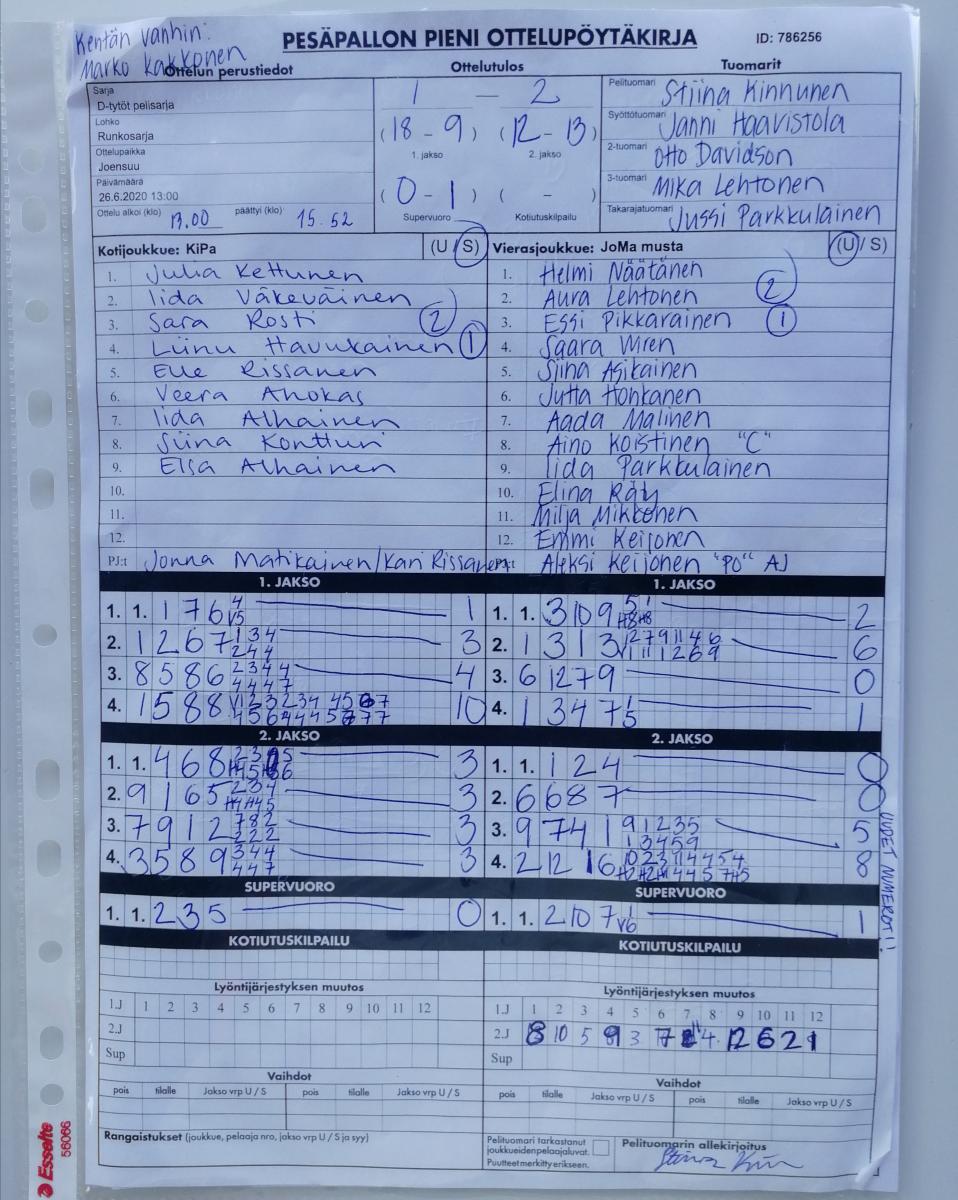 Kentän vanhin:
Marko Kakkonen
PESÄPALLON PIENI OTTELUPÖYTÄKIRJA ID: 786256
Ottelun perustiedot Ottelutulos Tuomarit
Sarja
D-tytöt pelisarja
Lohko
Runkosarja
Ottelupaikka
Joensuu
Päivämäärä
26.6.2020 13:00
Ottelu alkoi (klo) 13.00 päättyi (klo) 15.52
1 – 2
(18 - 9) (12 - 13)
1. jakso 2. jakso
(0 - 1) ( - )
Supervuoro Kotiutuskilpailu
Pelituomari Stiina Kinnunen
Syöttötuomari Janni Haavistola
2-tuomari Otto Davidson
3-tuomari Mika Lehtonen
Takarajatuomari Jussi Parkkulainen
Kotijoukkue: KiPa (U / S)
1. Julia Kettunen
2. Iida Väkeväinen
3. Sara Rosti 2
4. Liinu Havukainen 1
5. Elle Rissanen
6. Veera Ahokas
7. Iida Alhainen
8. Siina Kontturi
9. Elsa Alhainen
10.
11.
12.
PJ:t Jonna Matikainen/Kari Rissanen
Vierasjoukkue: JoMa musta (U / S)
1. Helmi Näätänen
2. Aura Lehtonen 2
3. Essi Pikkarainen 1
4. Saara Wren
5. Siina Asikainen
6. Jutta Honkanen
7. Aada Malinen
8. Aino Koistinen "C"
9. Iida Parkkulainen
10. Elina Räty
11. Milja Mikkonen
12. Emmi Keijonen
PJ:t Aleksi Keijonen "PO" AJ
1. JAKSO
1. 1. 1 7 6 4 V5 1
2. 1 2 6 7 1 3 4 2 4 4 3
3. 8 5 8 6 2 3 4 4 4 4 4 7 4
4. 1 5 8 8 10
1. JAKSO
1. 1. 3 10 9 2
2. 1 3 1 3 6
3. 6 12 7 9 0
4. 1 3 4 7 1 5 1
2. JAKSO
1. 1. 4 6 8 3
2. 9 1 6 5 2 3 4 3
3. 7 9 1 2 7 8 2 2 2 2 3
4. 3 5 8 9 3 4 4 4 4 7 3
2. JAKSO
1. 1. 1 2 4 0
2. 6 6 8 7 0
3. 9 7 4 1 9 1 2 3 5 1 3 4 5 9 5
4. 2 12 1 6 8
UUDET NUMEROT!!
SUPERVUORO
1. 1. 2 3 5 0
SUPERVUORO
1. 1. 2 10 7 1 V6 1
KOTIUTUSKILPAILU
KOTIUTUSKILPAILU
Lyöntijärjestyksen muutos
1.J 1 2 3 4 5 6 7 8 9 10 11 12
2.J
Sup
Lyöntijärjestyksen muutos
1.J 1 2 3 4 5 6 7 8 9 10 11 12
2.J 8 10 5 9 3 7 11 4 12 6 2 1
Sup
Vaihdot
pois tilalle Jakso vrp U / S pois tilalle Jakso vrp U / S
Vaihdot
pois tilalle Jakso vrp U / S pois tilalle Jakso vrp U / S
Rangaistukset (joukkue, pelaaja nro, jakso vrp U / S ja syy)
Pelituomari tarkastanut
joukkueiden pelaajaluvat.
Puutteet merkitty erikseen.
Pelituomarin allekirjoitus
Esselte
56066